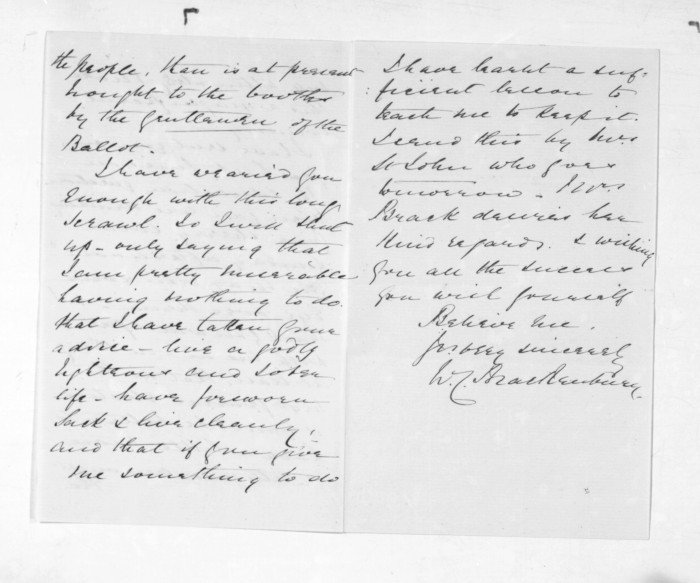 the people, than is at present
bought to the booths
by the gentlemen of the
Ballot.
I have wearied you
enough with this long
scrawl. So I will shut
up - only saying that
I am pretty miserable
having nothing to do.
that I have taken your
advice - live a godly
righteous and sober
life - have forsworn
Sack & live cleanly,
and that if you give
me something to do
I have learnt a suf-
ficient lesson to
teach me to keep it.
I send this by Mrs
St John who goes
tomorrow - Mrs
Brack desires her
kind regards. & wishing
you all the success
you wish yourself
Believe me.
Yr. very sincerely
W. C. Brackenbury.